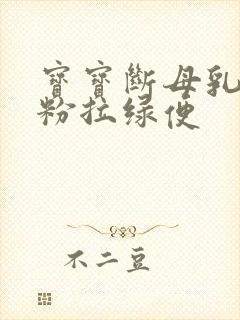 寶寶斷母乳
粉拉绿便
不二豆